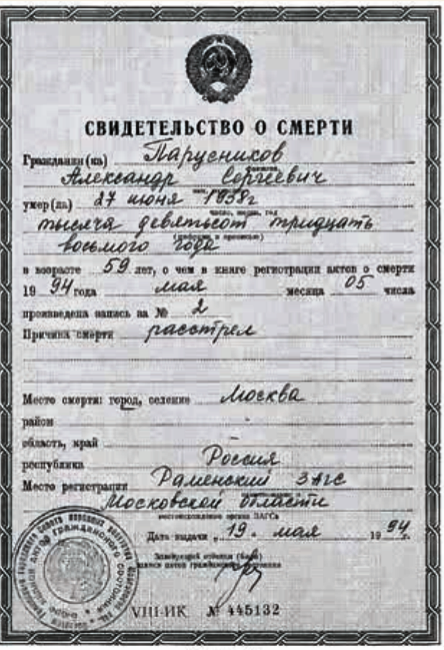 СВИДЕТЕЛЬСТВО О СМЕРТИ
Гражданин(ка) Парусников
Александр Сергеевич
умер(ла) 27 июня 1938г
число, месяц, год
тысяча девятьсот тридцать
восьмого года
(цифрами и прописью)
в возрасте 59 лет, о чем в книге регистрации актов о смерти
19 94 года мая месяца 05 числа
произведена запись за № 2
Причина смерти расстрел
Место смерти: город, селение Москва
район -
область, край
республика Россия
Место регистрации Раменский ЗАГС
Московской области
местонахождение органа ЗАГСа
Дата выдачи „19„ мая 1994г.
Заведующий отделом (бюро)
записи актов гражданского состояния
VIII-ИК № 445132